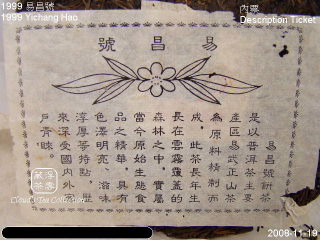 1999 易昌號
1999 Yichang Hao
內票
Description Ticket
易昌號
易昌號餅茶
是以普洱茶主要
產區易武正山茶
為原料精制而
成。此茶長年生
長在雲霧覆蓋的
森林之中,實屬
當今原始生態食
品之精華。具有
色澤明亮、滋味
淳厚等特點,
來深受國內外
戶青睞。
浮雲茶藏
Cloud's Tea Collection
2008-11-19